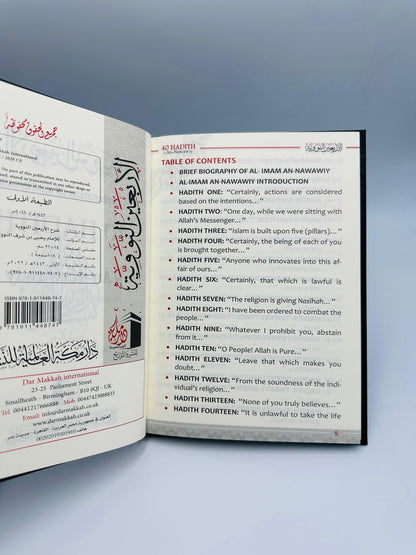 جميع الحقوق محفوظة
kkah International
/ 2020 CE
No part of this publication may be reproduced,
transmitted in any other shape or
permission of the copyright owner.
الطبعة الأولى
شرح الأربعين النووية
للإمام يحيى بن شرف النووي
ISBN 978-1-911448-74-7
9781911448747
دار مكة العالمية
Dar Makkah international
23-25 Parliament Street
Smallheath - Birmingham - B10 0QJ - UK
Tel. 00441217666888 Mob. 00447423088833
Email: info@darmakkah.co.uk
www.darmakkah.co.uk
00202019101910
الأربعين النووية
40 HADITH
An-Nawawiy
الأربعين النووية
TABLE OF CONTENTS
• BRIEF BIOGRAPHY OF AL- IMAM AN-NAWAWIY
• AL-IMAM AN-NAWAWIY INTRODUCTION
• HADITH ONE: “Certainly, actions are considered
based on the intentions...”
• HADITH TWO: “One day, while we were sitting with
Allah's Messenger...”
• HADITH THREE: “Islam is built upon five (pillars)...”
• HADITH FOUR: “Certainly, the being of each of you
is brought together...”
• HADITH FIVE: “Anyone who innovates into this af-
fair of ours...”
• HADITH SIX: “Certainly, that which is lawful is
clear...”
• HADITH SEVEN: “The religion is giving Nasihah...”
• HADITH EIGHT: “I have been ordered to combat the
people...”
• HADITH NINE: “Whatever I prohibit you, abstain
from it...”
• HADITH TEN: “O People! Allah is Pure...”
• HADITH ELEVEN: “Leave that which makes you
doubt...”
• HADITH TWELVE: “From the soundness of the indi-
vidual's religion...”
• HADITH THIRTEEN: “None of you truly believes...”
• HADITH FOURTEEN: “It is unlawful to take the life
5